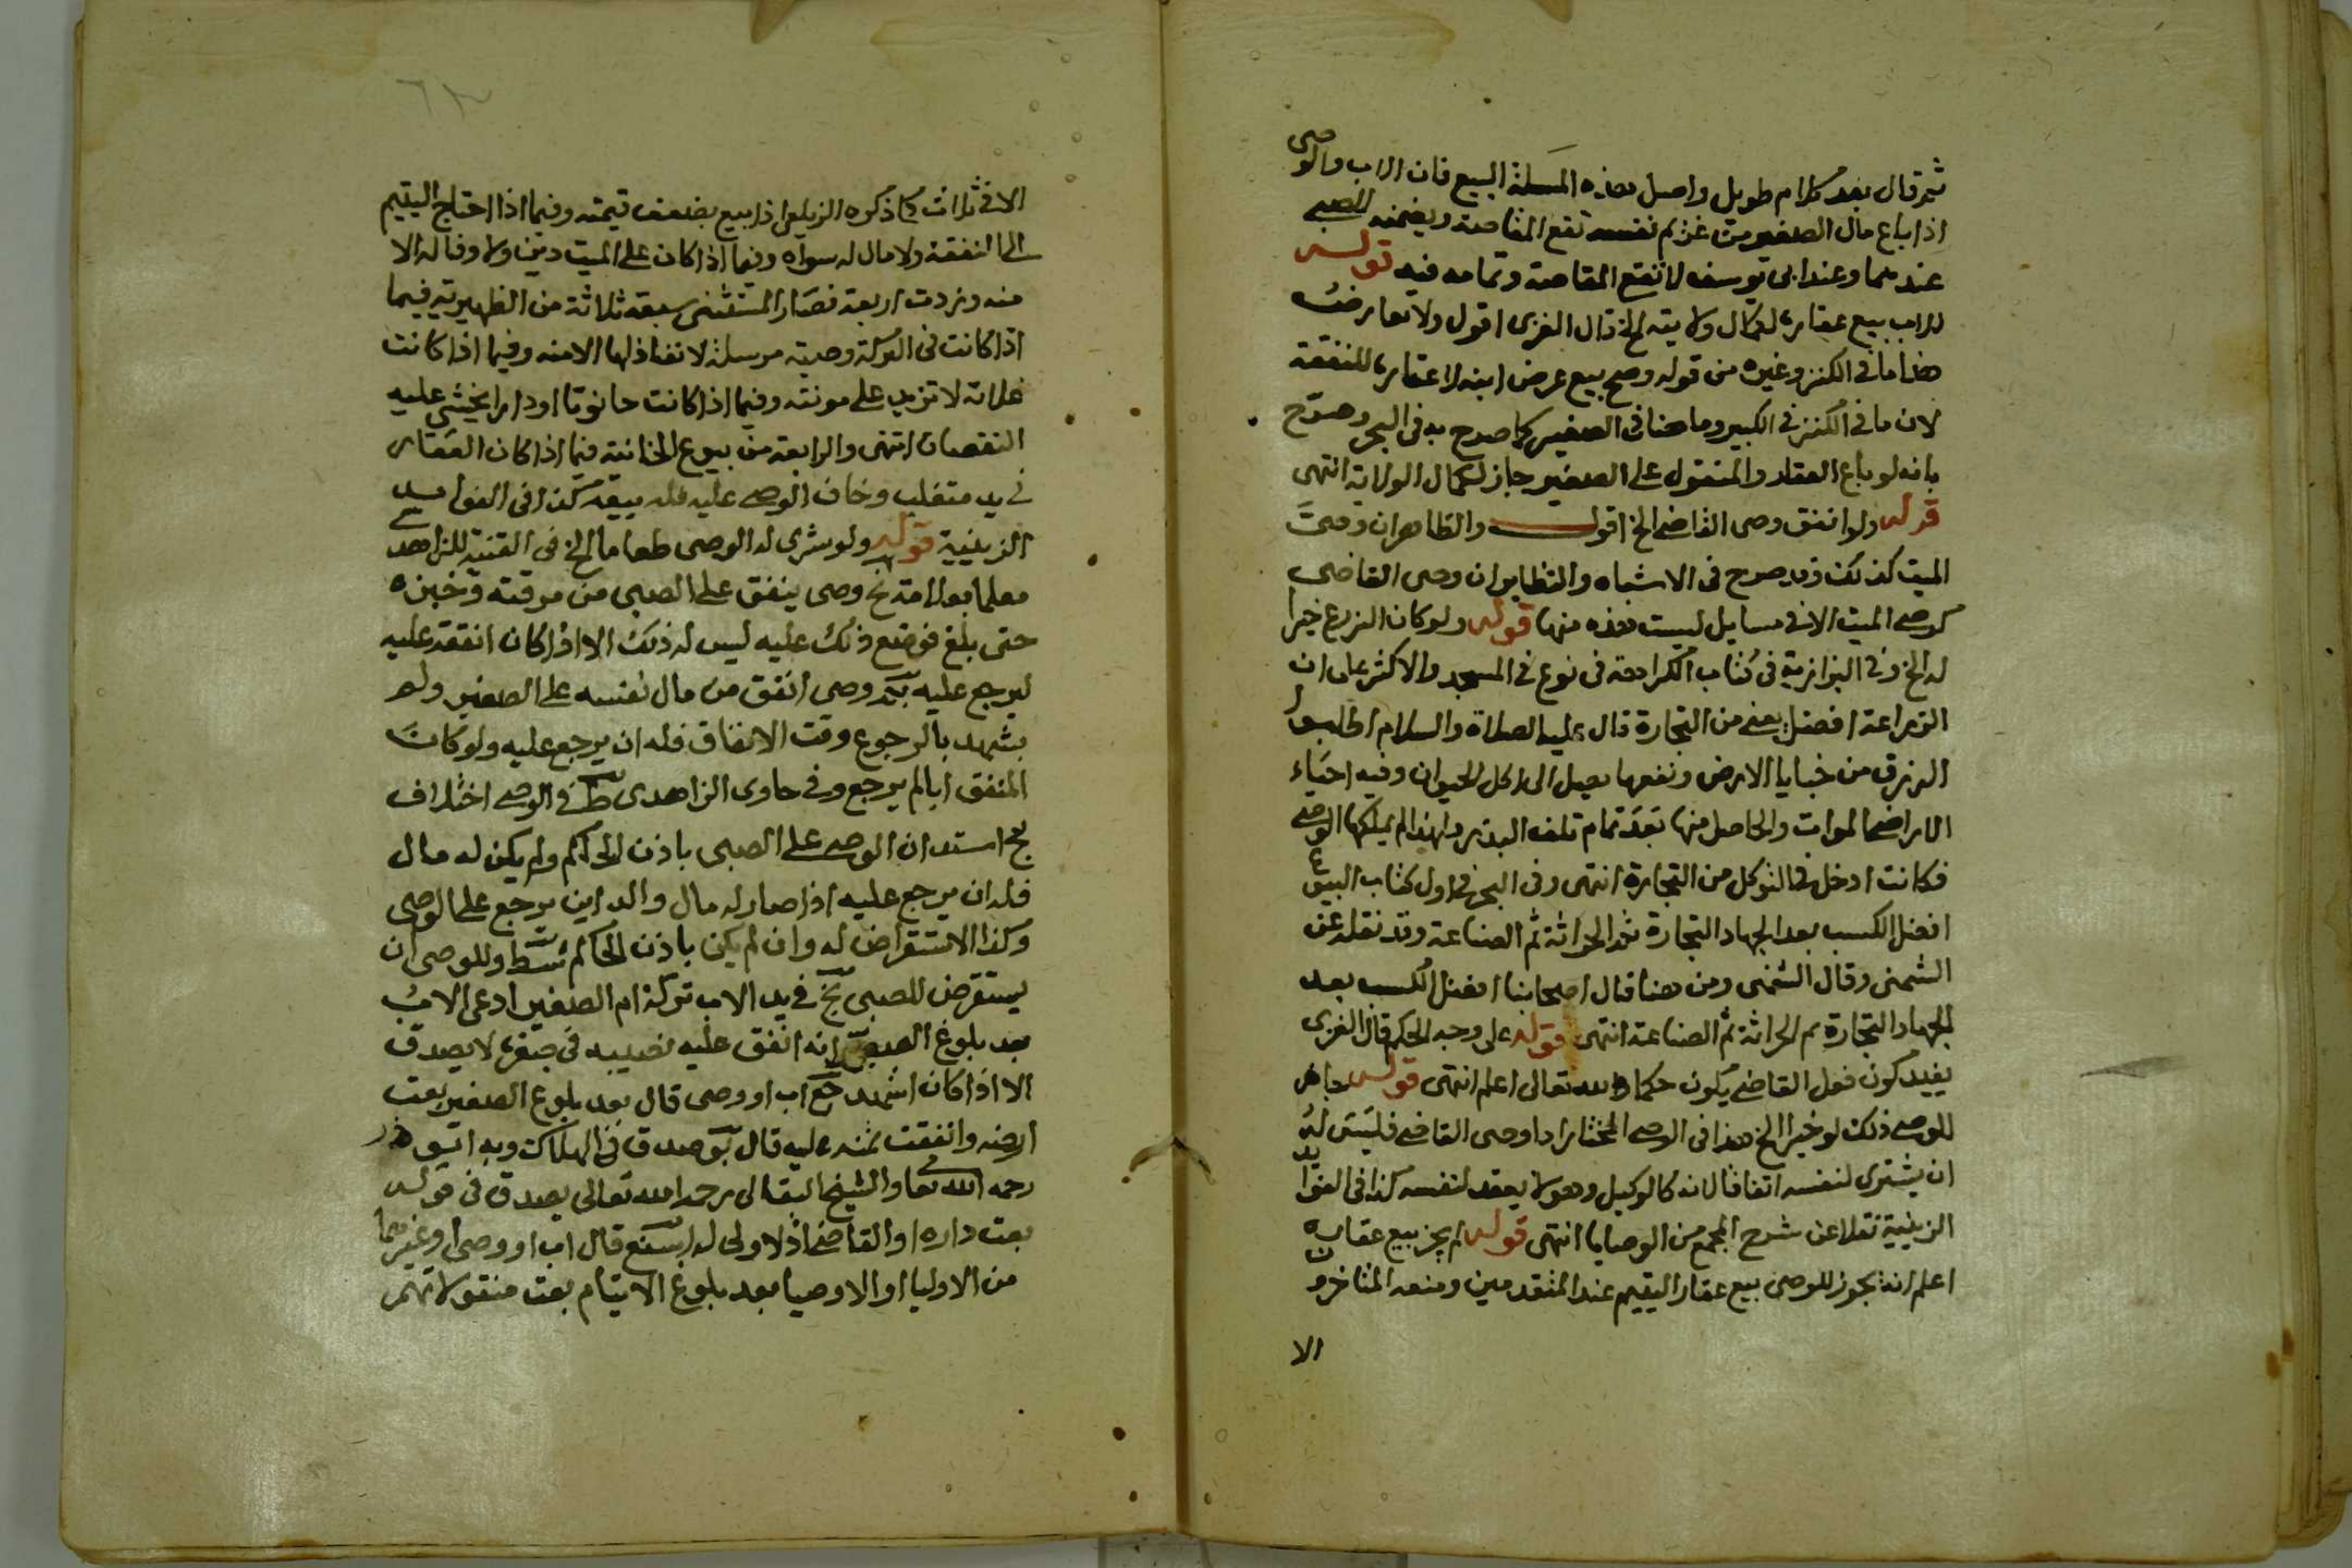 ثم قال بعد كلام طويل واصل هذه المسئلة البيع فان الاب والوصى
اذا باع مال الصغير من غريم نفسه تقع المقاصة ويضمنه للصبي
عندهما وعند ابى يوسف لا تقع المقاصة وتمامه فيه قوله
للاب بيع عقاره لكمال ولايته الخ قال الغزى اقول ولا تعارض
هذا ما فى الكنز وغيره من قوله وصح بيع عرض ابنه لا عقاره للنفقة
لان ما فى الكنز فى الكبير وما هنا فى الصغير كما صرح به فى البحر وصرح
بانه لو باع العقار والمنقول على الصغير جاز لكمال الولاية انتهى
قوله ولو انفق وصى القاضى الخ اقول والظاهر ان وصى
الميت كذلك وقد صرح فى الاشباه والنظاير ان وصى القاضى
كوصى الميت الا فى مسايل ليست هذه منها قوله ولو كان الزرع خيرا
له الخ وفى البزازية فى كتاب الكراهة فى نوع فى المسجد والاكثر على ان
الزراعة افضل يعنى من التجارة قال عليه الصلاة والسلام اطلبوا
الرزق من خبايا الارض ونفعها يصل الى اكل الحيوان وفيه احياء
الاراضى الموات والحاصل منها بعد تمام تلف البذر ولهذا لم يملكها الوصى
فكانت ادخل فى التوكل من التجارة انتهى وفى البحر فى اول كتاب البيوع
افضل الكسب بعد الجهاد التجارة ثم الحراثة ثم الصناعة وقد نقله عن
الشمنى وقال الشمنى ومن هنا قال اصحابنا افضل الكسب بعد
الجهاد التجارة ثم الحراثة ثم الصناعة انتهى قوله على وجه الحكم قال الغزى
يفيد كون فعل القاضى يكون حكما والله تعالى اعلم انتهى قوله جاز
للوصى ذلك لو خيرا الخ هذا فى الوصى المختار اما وصى القاضى فليس له
ان يشترى لنفسه اتفاقا لانه كالوكيل وهو لا يعقد لنفسه كذا فى الفوايد
الزينية نقلا عن شرح المجمع من الوصايا انتهى قوله لم يجز بيع عقاره
اعلم انه يجوز للوصى بيع عقار اليتيم عند المتقدمين ومنعه المتاخرون
الا
الا فى ثلاث كما ذكره الزيلعى اذا بيع بضعف قيمته وفيما اذا احتاج اليتيم
الى النفقة ولا مال له سواه وفيما اذا كان على الميت دين ولا وفا له الا
منه وزدت اربعة فصار المستثنى سبعة ثلاثة من الظهيرية فيما
اذا كانت فى التركة وصية مرسلة لا نفاذ لها الا منه وفيما اذا كانت
غلاته لا تزيد على مونته وفيما اذا كانت حانوتا او دارا يخشى عليه
النقصان انتهى والرابعة من بيوع الخانية فيما اذا كان العقار
فى يد متغلب وخاف الوصى عليه فله بيعه كذا فى الفوايد
الزينية قوله ولو شرى له الوصى طعاما الخ فى القنية للزاهدى
معلما بعلامة بخ وصى ينفق على الصبى من مرقته وخبزه
حتى بلغ فوضع ذلك عليه ليس له ذلك الا اذا كان انفقه عليه
ليرجع عليه وصى انفق من مال نفسه على الصغير ولم
يشهد بالرجوع وقت الانفاق فله ان يرجع عليه ولو كان
المنفق ابا لم يرجع وفى حاوى الزاهدى ط فى الوصى اختلاف
بخ استدان الوصى على الصبى باذن الحاكم ولم يكن له مال
فله ان يرجع عليه اذا صار له مال والداين يرجع على الوصى
وكذا الاستقراض له وان لم يكن باذن الحاكم شط وللوصى ان
يستقرض للصبى بخ فى يد الاب تركة ام الصغير ادعى الاب
بعد بلوغ الصغير انه انفق عليه نصيبه فى صغره لا يصدق
الا اذا كان اشهد جع اب او وصى قال بعد بلوغ الصغير بعت
ارضه وانفقت ثمنه عليه قال بق صدق فى الهلاك وبه
رحمه الله تعالى والشيخ البقالى رحمه الله تعالى يصدق فى قوله
بعت داره او القاضى اذ لا ولى له سع قال اب او وصى او غيرهما
من الاوليا او الاوصيا بعد بلوغ الايتام بعت منقولاتهم